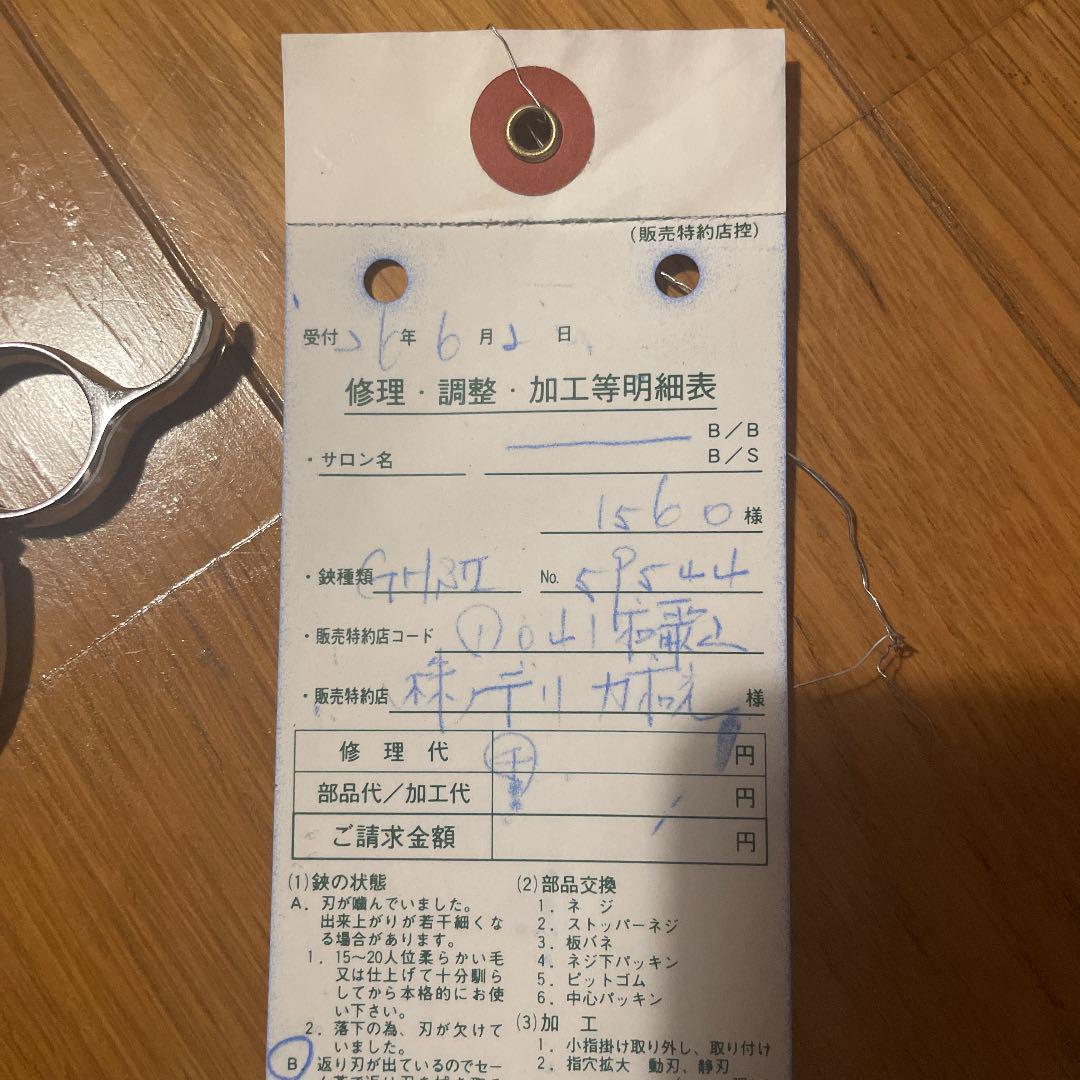 (販売特約店控)
受付 26年 6月2日
修理・調整・加工等明細表
B/B
・サロン名 B/S
1560 様
・鋏種類 No. 5P544
・販売特約店コード ① 041 和歌山
・販売特約店 様
修理代 円
部品代/加工代 円
ご請求金額 円
(1)鋏の状態
A. 刃が噛んでいました。
出来上がりが若干細くな
る場合があります。
1. 15〜20人位柔らかい毛
又は仕上げて十分馴ら
してから本格的にお使
い下さい。
2. 落下の為、刃が欠けて
いました。
B 返り刃が出ているのでセー
(2)部品交換
1. ネジ
2. ストッパーネジ
3. 板バネ
4. ネジ下パッキン
5. ピットゴム
6. 中心パッキン
(3)加工
1. 小指掛け取り外し、取り付け
2. 指穴拡大 動刃、静刃